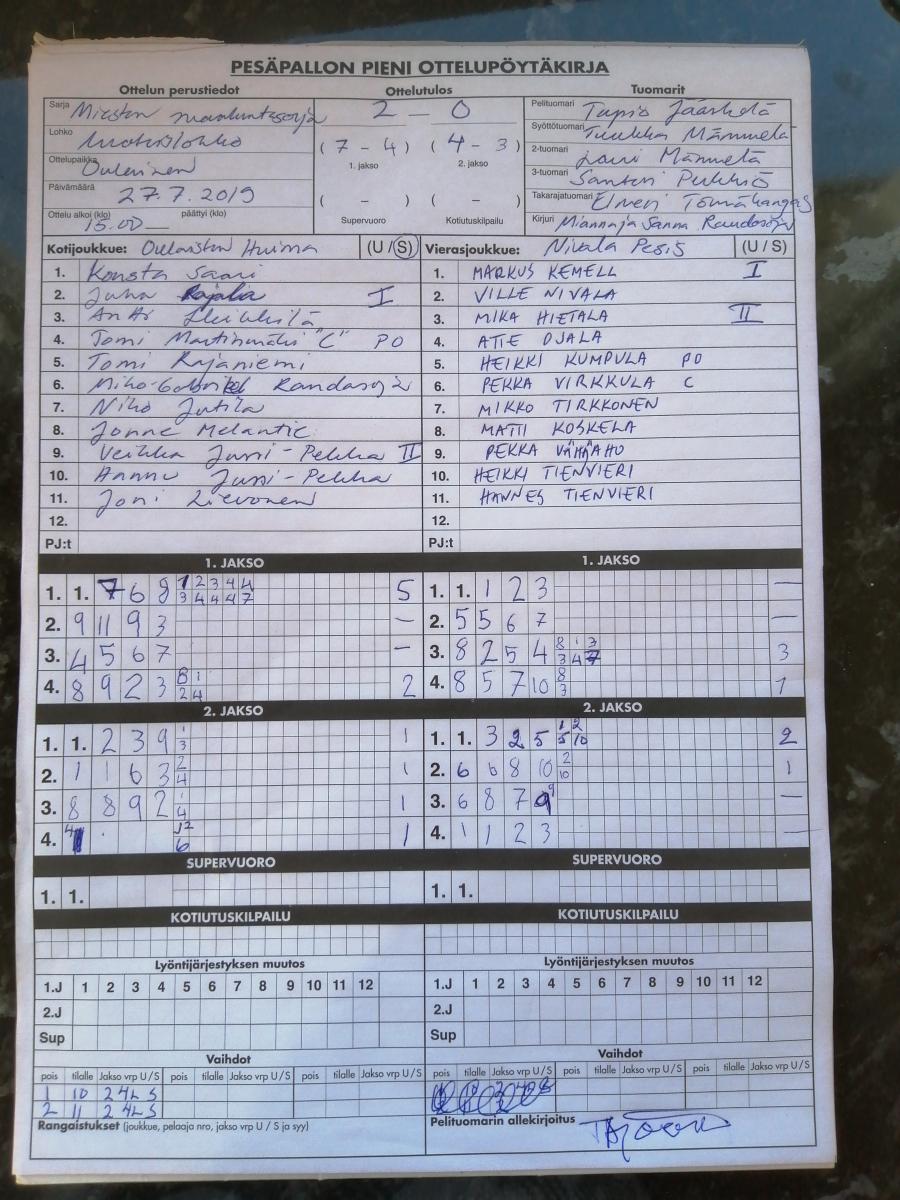 PESÄPALLON PIENI OTTELUPÖYTÄKIRJA
Ottelun perustiedot Ottelutulos Tuomarit
Sarja Miesten maakuntasarja 2 – 0 Pelituomari Tapio Jääskelä
Lohko Syöttötuomari Tuukka Männnetä
(7 – 4) (4 – 3)
Ottelupaikka Oulainen 1. jakso 2. jakso 2-tuomari Lauri Männetä
Päivämäärä 27.7.2019 3-tuomari Santeri Pukkiö
( – ) ( – )
Takarajatuomari Elmeri Törmäkangas
Ottelu alkoi (klo) 15.00 päättyi (klo) Supervuoro Kotiutuskilpailu Kirjuri Sanna
Kotijoukkue: Oulaisten Huima (U / S) Vierasjoukkue: Nivala Pesis (U / S)
1. Konsta Saari 1. MARKUS KEMELL I
2. Juha Rajala I 2. VILLE NIVALA
3. Antti Heikkilä 3. MIKA HIETALA II
4. Tomi Martinmäki "C" PO 4. ATTE OJALA
5. Tomi Rajaniemi 5. HEIKKI KUMPULA PO
6. Miko-Gabriel Randasoja 6. PEKKA VIRKKULA C
7. Niko Jutila 7. MIKKO TIRKKONEN
8. Jonne Melantie 8. MATTI KOSKELA
9. Veikka Jussi-Pekka II 9. PEKKA VÄHÄAHO
10. Hannu Jussi-Pekka 10. HEIKKI TIENVIERI
11. Joni Lievonen 11. HANNES TIENVIERI
12. 12.
PJ:t PJ:t
1. JAKSO 1. JAKSO
1. 1. 7 6 8 1 2 3 4 4 5 1. 1. 1 2 3 —
3 4 4 4 7
2. 9 11 9 3 — 2. 5 5 6 7 —
3. 4 5 6 7 — 3. 8 2 5 4 8 1 3 3
3 4 7
4. 8 9 2 3 8 1 2 4. 8 5 7 10 8 1
2 4 3
2. JAKSO 2. JAKSO
1. 1. 2 3 9 1 1 1. 1. 3 2 5 1 2 2
3 5 10
2. 1 1 6 3 2 1 2. 6 6 8 10 2 1
4 10
3. 8 8 9 2 1 1 3. 6 8 7 9 —
4
4. 4 12 1 4. 1 1 2 3 —
6
SUPERVUORO SUPERVUORO
1. 1. 1. 1.
KOTIUTUSKILPAILU KOTIUTUSKILPAILU
Lyöntijärjestyksen muutos Lyöntijärjestyksen muutos
1.J 1 2 3 4 5 6 7 8 9 10 11 12 1.J 1 2 3 4 5 6 7 8 9 10 11 12
2.J 2.J
Sup Sup
Vaihdot Vaihdot
pois tilalle Jakso vrp U / S pois tilalle Jakso vrp U / S pois tilalle Jakso vrp U / S pois tilalle Jakso vrp U / S pois tilalle Jakso vrp U / S pois tilalle Jakso vrp U / S
1 10 2 4L S
2 11 2 4L S
Rangaistukset (joukkue, pelaaja nro, jakso vrp U / S ja syy) Pelituomarin allekirjoitus